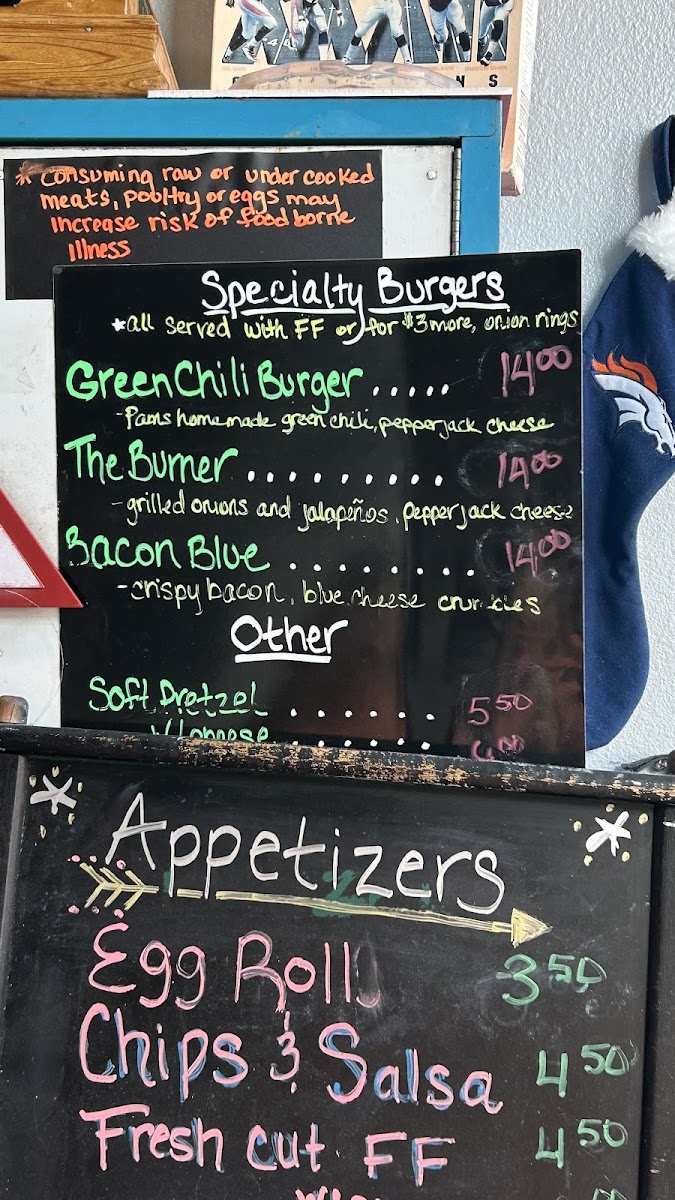 N S
* Consuming raw or under cooked
meats, poultry or eggs may
increase risk of food borne
illness
Specialty Burgers
*all served with FF or for $3 more, onion rings
Green Chili Burger ..... 14.00
-Pams homemade green chili, pepperjack cheese
The Burner ......... 14.00
-grilled onions and jalapeños, pepper jack cheese
Bacon Blue ........ 14.00
-crispy bacon, blue cheese crumbles
Other
Soft Pretzel ....... 5.50
Appetizers
Egg Roll 3.50
Chips & Salsa 4.50
Fresh Cut FF 4.50